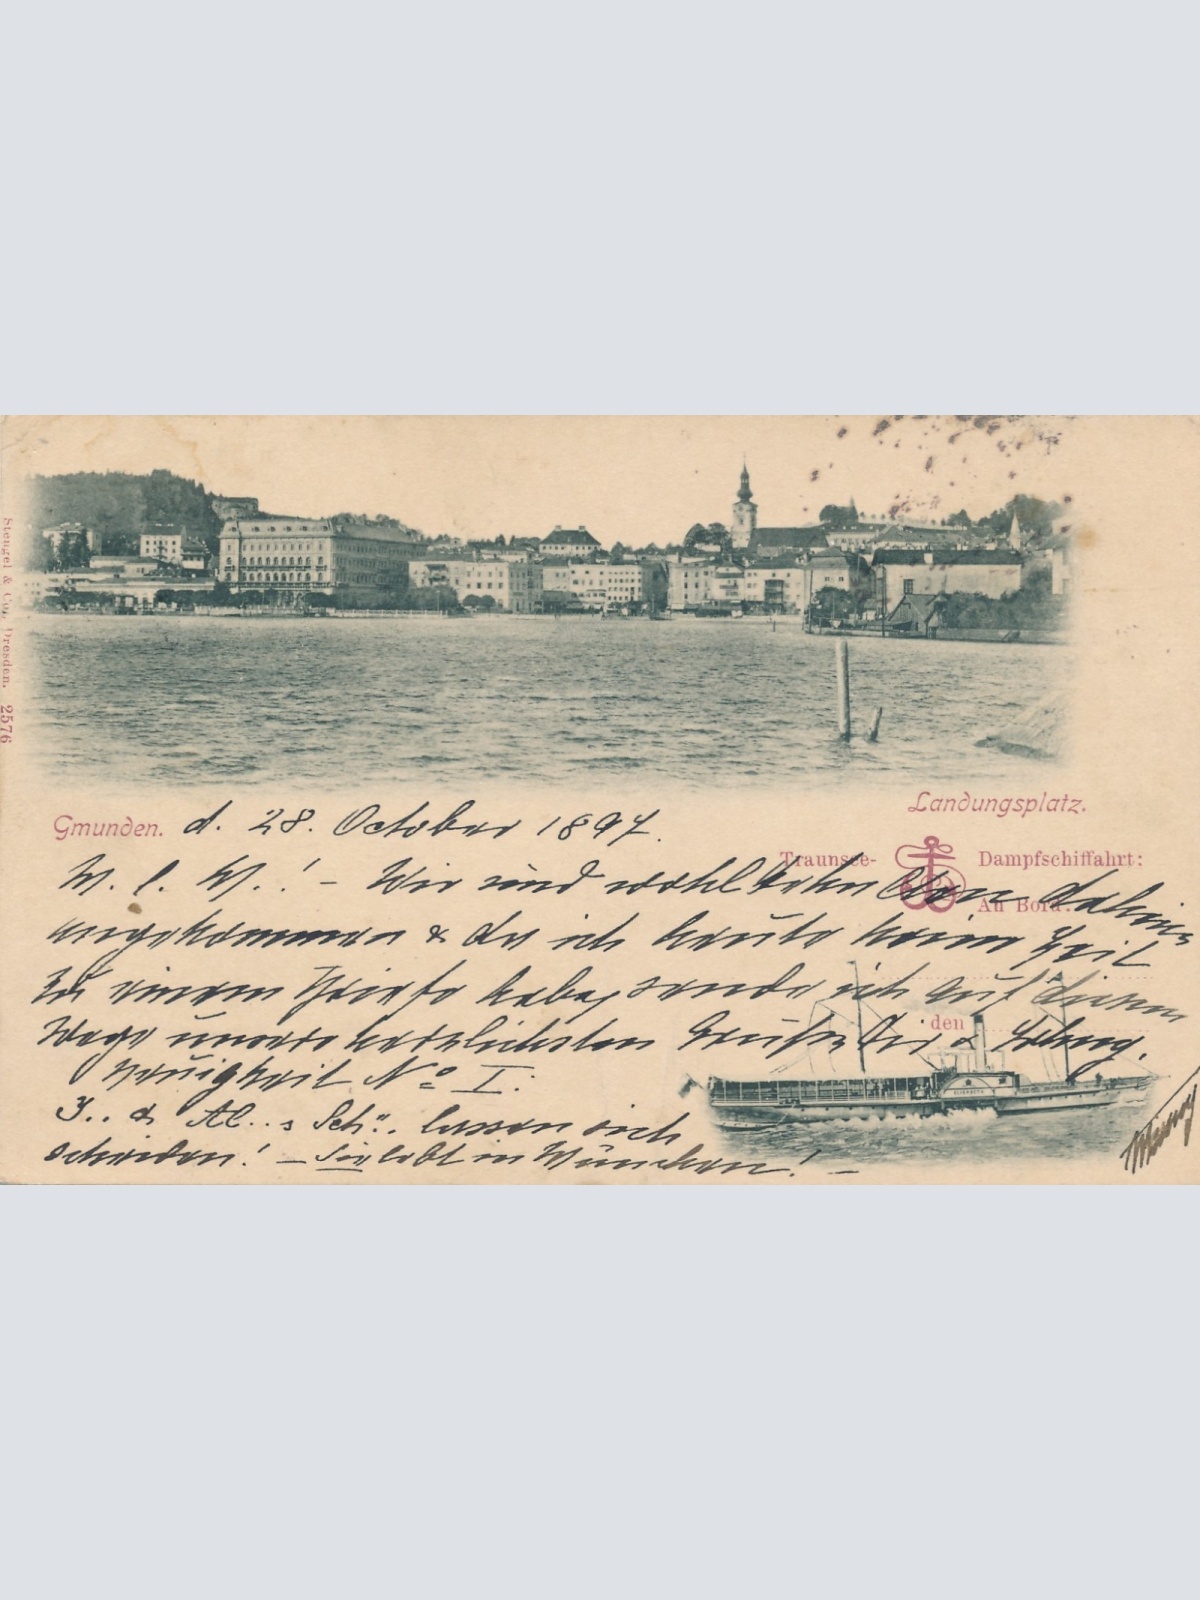 Stengel & Co., Dresden. 2576
Landungsplatz.
Gmunden. d. 28. October 1897.
Traunsee- Dampfschiffahrt:
An Bord:
den
M. l. M.! – Wir sind wohlbehalten
angekommen & da ich heute keine Zeit
zu einem Briefe habe, sende ich auf diesem
Wege unsere herzlichsten Grüße Dir &
Neuigkeit No I:
J.. & Al.. Sch.. lassen sich
scheiden! – Sie lebt in München! –